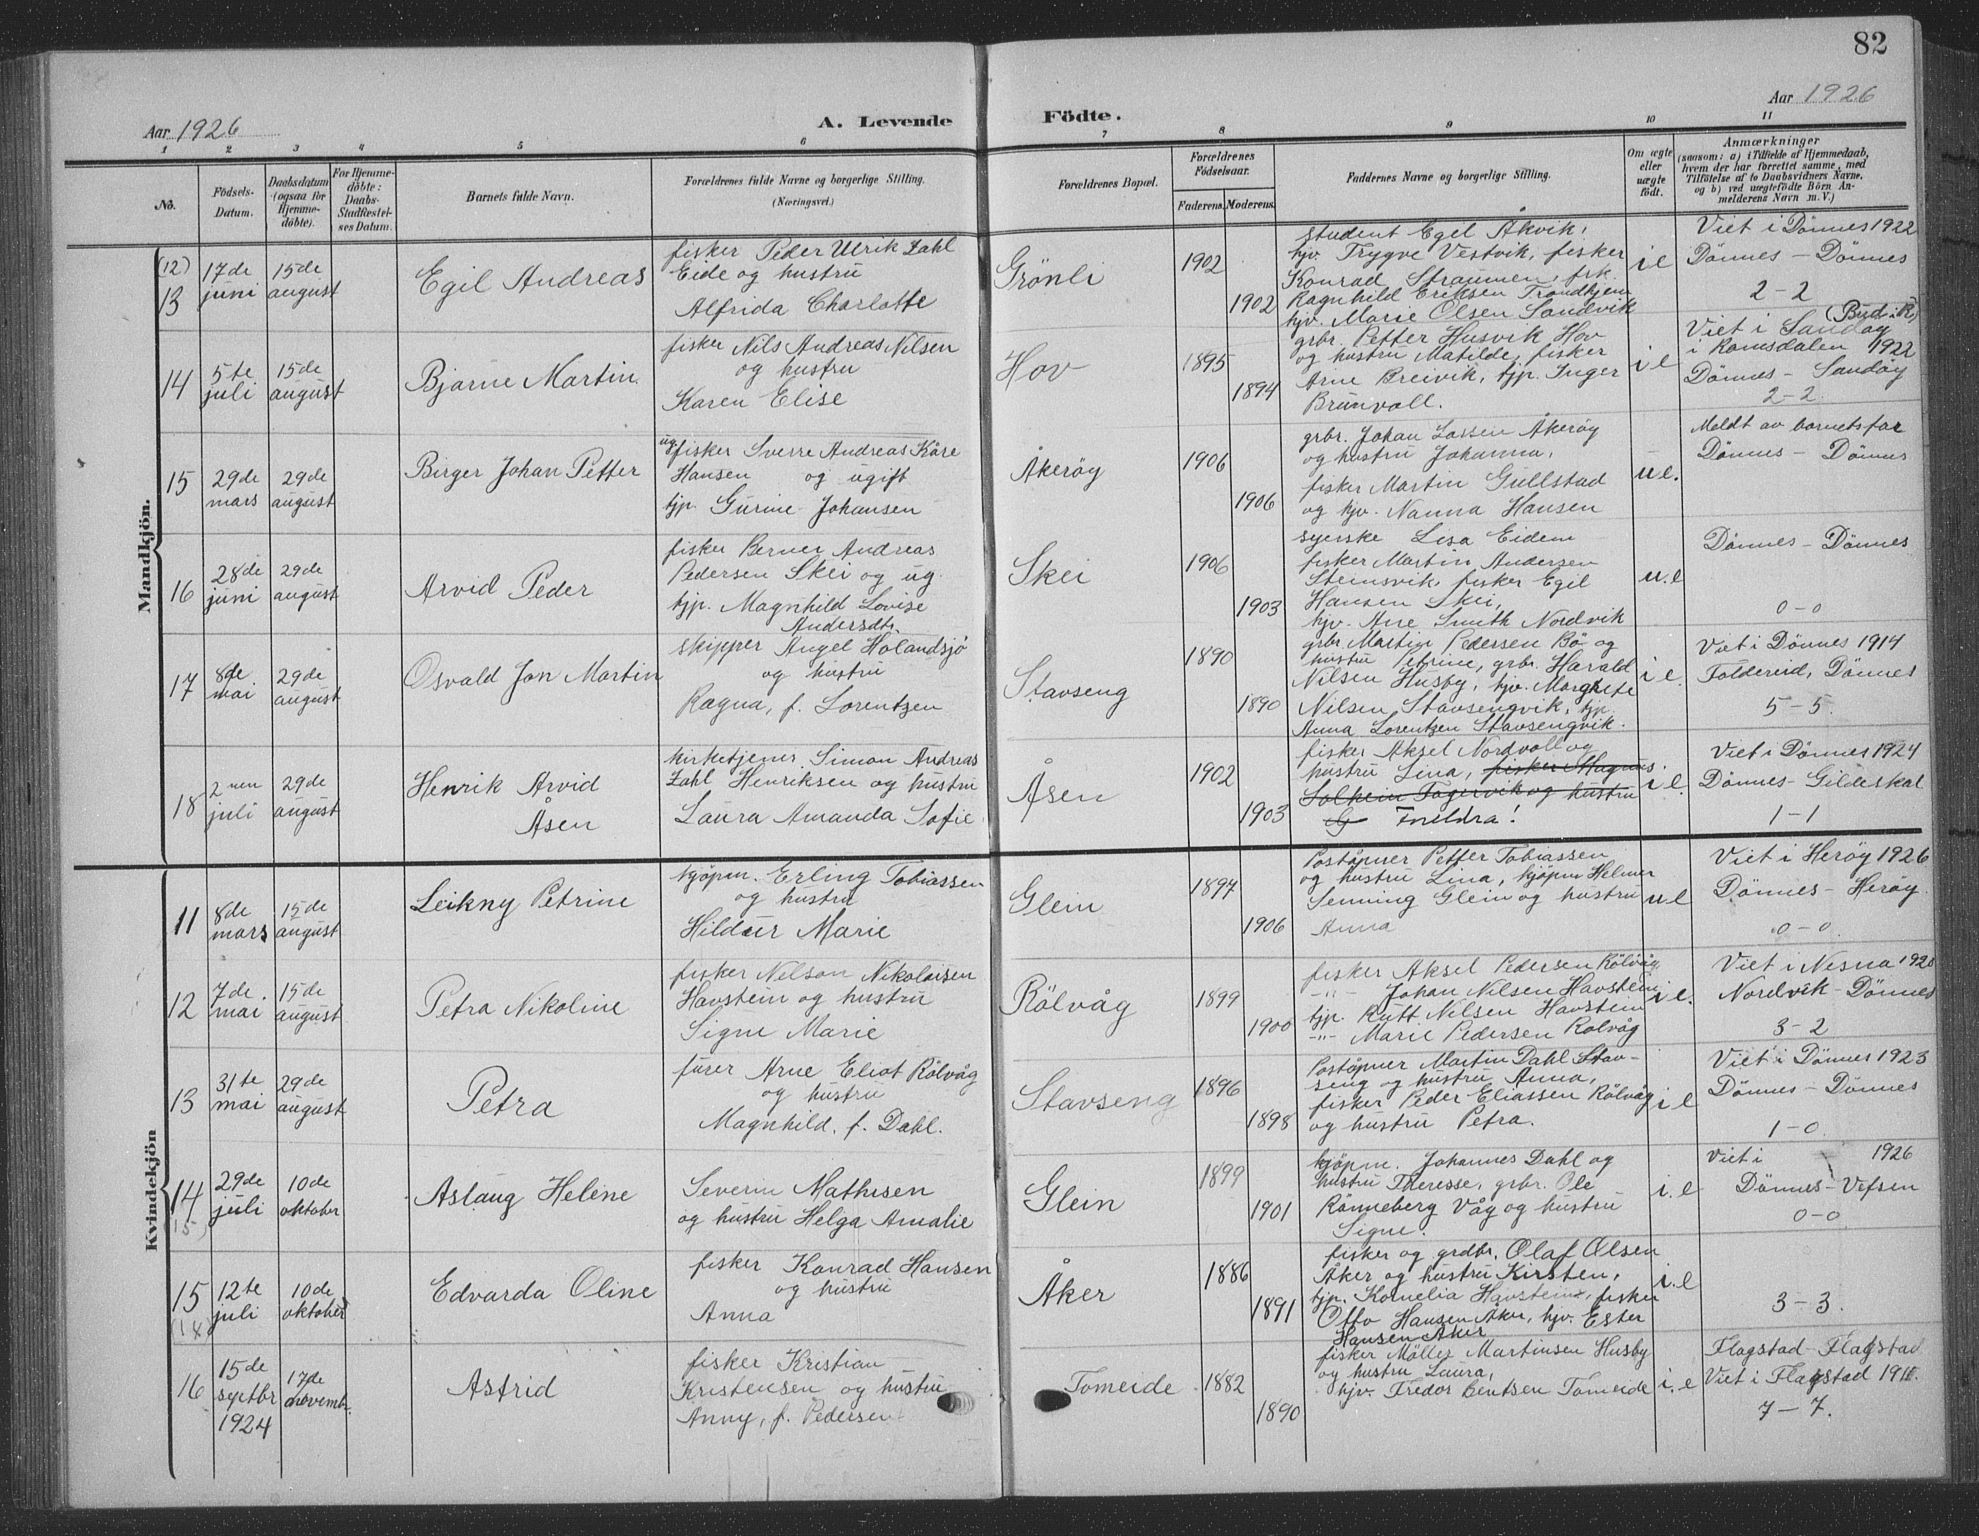 82
Aar 1926
A. Levende
Födte.
Aar 1926
1 2 3 4 5 6 7 8 9 10 11
No.
Födsels-
Datum.
Daabsdatum
(ogsaa for
Hjemme-
döbte).
For Hjemme-
döbte:
Daabs-
Stadfæstel-
ses Datum.
Barnets fulde Navn.
Forældrenes fulde Navne og borgerlige Stilling.
(Næringsvei.)
Forældrenes Bopæl.
Forældrenes
Födselsaar.
Faderens. Moderens.
Faddernes Navne og borgerlige Stilling.
Om ægte
eller
uægte
födt.
Anmærkninger
(saasom: a) i Tilfælde af Hjemmedaab,
hvem der har forrettet samme, med
Tilföielse af to Daabsvidners Navne,
og b) ved uægtefödte Börn An-
melderens Navn m. V.)
Mandkjön.
(12)
13
17de
juni
15de
august
Egil Andreas
fisker Peder Ulrik Zahl
Eide og hustru
Alfrida Charlotte
Grönli
1902
1902
student Egel Åkvik,
hjv. Trygve Vestvik, fisker
Konrad Straumen, frk.
Ragnhild Eriksen Trondhjem
hjv. Marie Olsen Sandvik
i e
Viet i Dönnes 1922
Dönnes - Dönnes
2-2
14
5te
juli
15de
august
Bjarne Martin
fisker Nils Andreas Nilsen
og hustru
Karen Elise
Hov
1895
1894
grbr. Petter Husvik Hov
og hustru Matilde, fisker
Arne Breivik, tjp. Inger
Brunvoll.
i e
(Bud i R)
Viet i Sandöy
i Romsdalen 1922
Dönnes - Sandöy
2-2.
15
29de
mars
29de
august
Birger Johan Petter
ug. fisker Sverre Andreas Kåre
Hansen og ugift
tjp. Gurine Johansen
Åkeröy
1906
1906
grbr. Johan Larsen Åkeröy
og hustru Johanna,
fisker Martin Gullstad
og hjv. Nanna Hansen
u e.
Meldt av barnets far
Dönnes - Dönnes
16
28de
juni
29de
august
Arvid Peder
fisker Berner Andreas
Pedersen Skei og ug.
tjp. Magnhild Lovise
Andersdtr.
Skei
1906
1903
syerske Lisa Eidem
fisker Martin Andersen
Steinsvik, fisker Egil
Hansen Skei,
hjv. Ane Smith Nordvik
u. e
Dönnes - Dönnes
0-0
17
8de
mai
29de
august
Osvald Jon Martin
skipper Angel Holandsjö
og hustru
Ragna, f. Lorentzen
Stavseng
1890
1890
grbr Martin Pedersen Bö og
hustru Petrine, grbr. Harald
Nilsen Husby, hjv. Margrete
Nilsen Stavsengvik, tjp.
Anna Lorentzen Stavsengvik.
i e.
Viet i Dönnes 1914
Foldereid, Dönnes
5-5.
18
2nen
juli
29de
august
Henrik Arvid
Åsen
kirketjener Simon Andreas
Zahl Henriksen og hustru
Laura Amanda Sofie
Åsen
1902
1903
fisker Aksel Nordvoll og
hustru Lina, fisker Magnus
Solheim Fagervik og hustru
i e.
Viet i Dönnes 1924
Dönnes - Gildeskål
1-1
Kvindekjön
11
8de
mars
15de
august
Leikny Petrine
kjöpm. Erling Tobiassen
og hustru
Hildur Marie
Glein
1897
1906
Poståpner Petter Tobiassen
og hustru Lina, kjöpm Helmer
Senning Glein og hustru
Anna
u e
Viet i Heröy 1926
Dönnes - Heröy.
0-0.
12
7de
mai
15de
august
Petra Nikoline
fisker Nelson Nikolaisen
Havstein og hustru
Signe Marie
Rölvåg
1899
1900
fisker Aksel Pedersen Rölvåg
-"- Johan Nilsen Havstein
tjp. Rutt Nilsen Havstein
-"- Marie Pedersen Rölvåg
i e.
Viet i Nesna
Nordvik - Dönnes
3-2
13
31te
mai
29de
august
Petra
furer Arne Eliot Rölvåg
og hustru
Magnhild, f. Dahl.
Stavseng
1896
1898
Poståpner Martin Dahl Stav-
seng og hustru Anna,
fisker Peder Eliassen Rölvåg
og hustru Petra.
i e
Viet i Dönnes 1923
Dönnes - Dönnes
1-0.
14
(15)
29de
juli
10de
oktober
Aslaug Helene
Severin Mathisen
og hustru Helga Amalie
Glein
1899
1901
kjöpm. Johannes Dahl og
hustru Theresse, grbr. Ole
Rönneberg Våg og hustru
Signe.
i. e
Viet i 1926
Dönnes - Vefsen
0-0
15
(14)
12te
juli
10de
oktober
Edvarda Oline
fisker Konrad Hansen
og hustru
Anna
Åker
1886
1891
fisker og grdbr. Olaf Olsen
Åker og hustru Kirsten,
tjp. Kornelia Havstein, fisker
Otto Hansen Åker, hjv. Ester
Hansen Åker
i. e
3-3.
16
15de
septbr
1924
17de
novemb.
Astrid
fisker Kristian
Kristensen og hustru
Anny, f. Pedersen
Tomeide
1882
1890
fisker Möller Martinsen Husby
og hustru Laura,
hjv. Fredor Bentsen Tomeide
i. e
Flagstad - Flagstad
Viet i Flagstad
7-7.